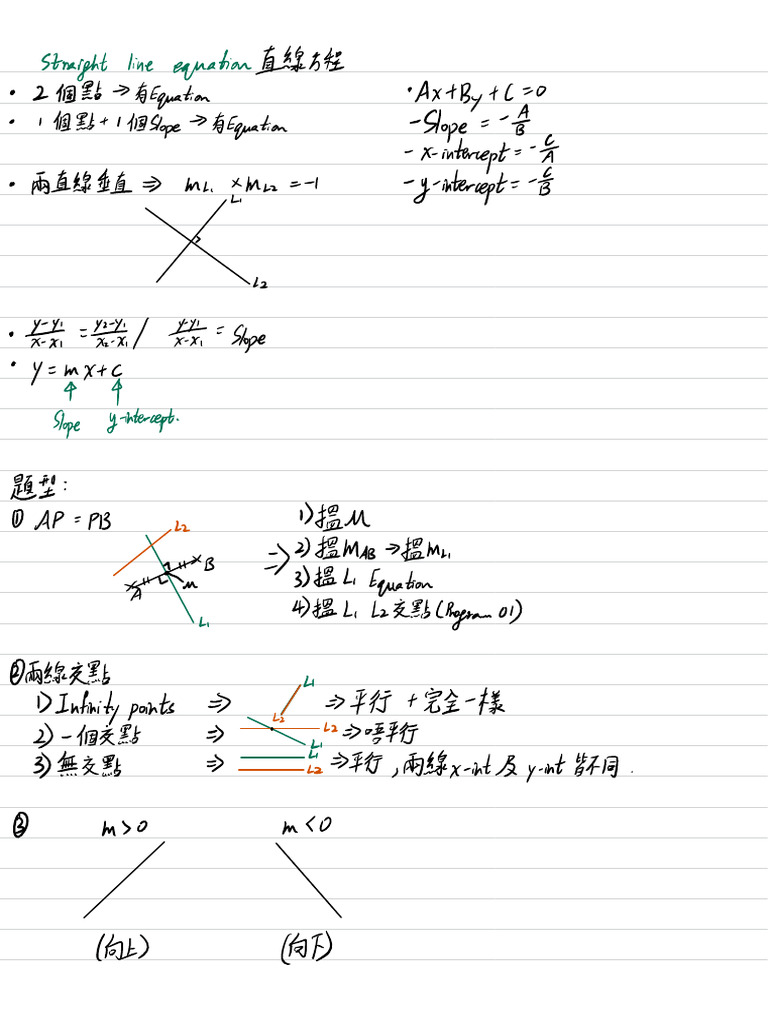 Straight line equation 直線方程
• 2個點 → 有Equation
• 1個點 + 1個Slope → 有Equation
• 兩直線垂直 ⇒ mL₁ × mL₂ = -1
L₁
L₂
• Ax + By + C = 0
- Slope = -A/B
- x-intercept = -C/A
- y-intercept = -C/B
• (y-y₁)/(x-x₁) = (y₂-y₁)/(x₂-x₁) / (y-y₁)/(x-x₁) = Slope
• y = mx + c
Slope y-intercept.
題型:
① AP = PB
L₂
B
A
M
L₁
⇒
1) 搵M
2) 搵mAB → 搵mL₁
3) 搵L₁ Equation
4) 搵L₁ L₂交點 (Program 01)
②兩線交點
1) Infinity points ⇒ L₁ L₂ ⇒ 平行 + 完全一樣
2) 一個交點 ⇒ L₂ L₁ ⇒ 唔平行
3) 無交點 ⇒ L₁ L₂ ⇒ 平行, 兩線x-int及y-int皆不同.
③ m > 0 m < 0
(向上) (向下)